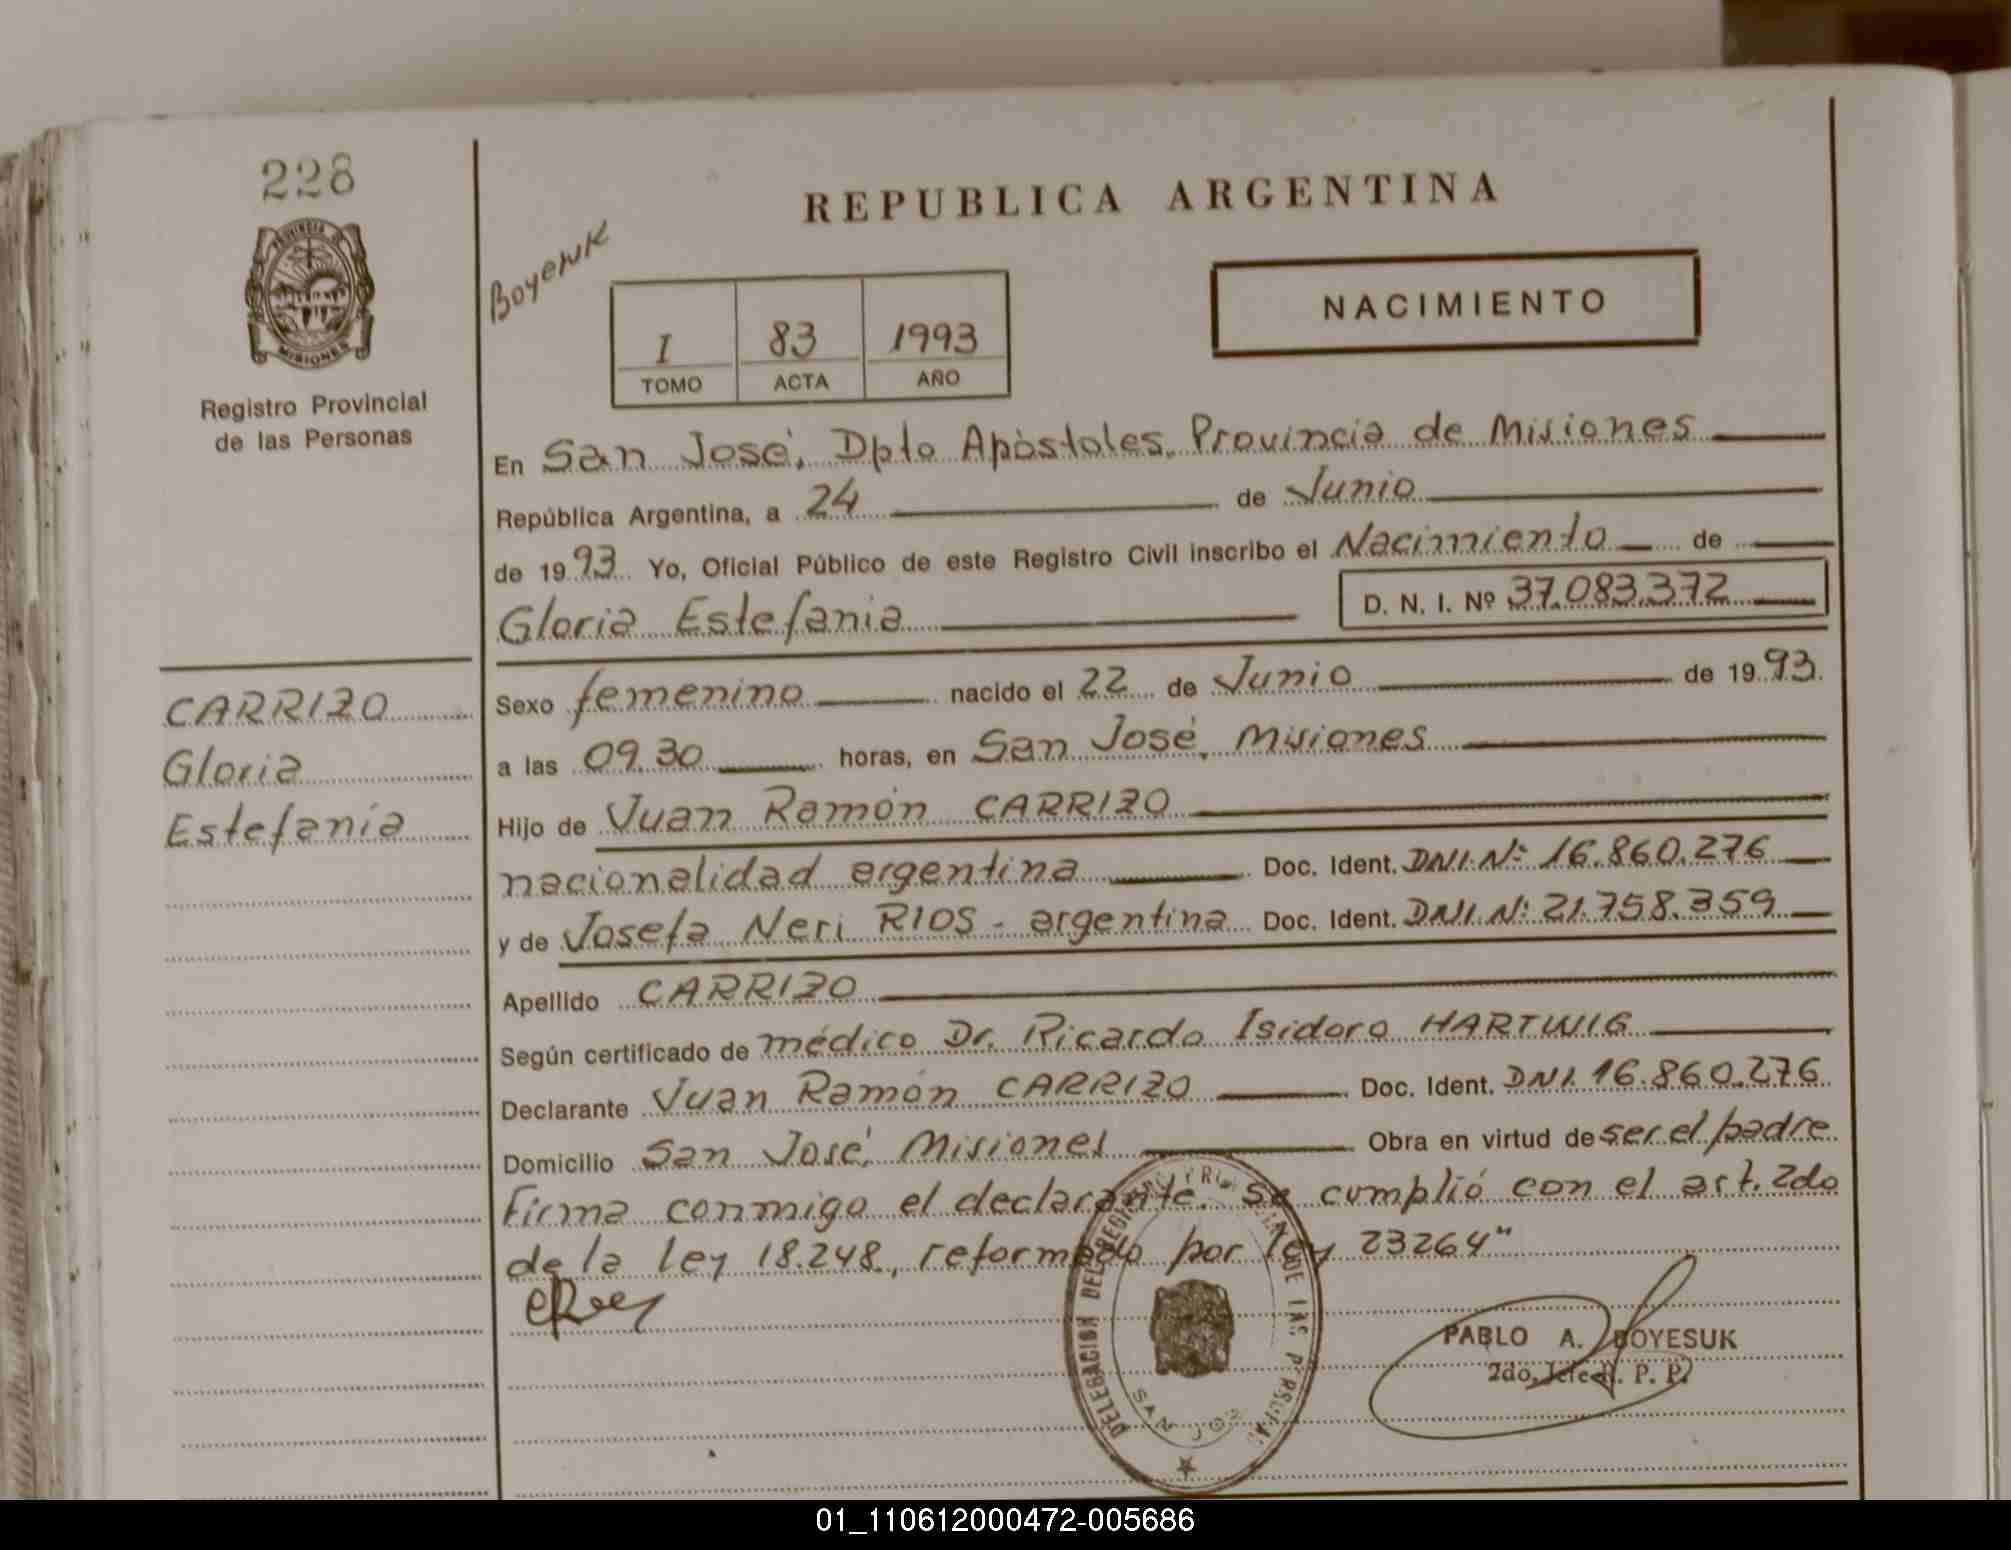 228
PROVINCIA DE
MISIONES
Registro Provincial
de las Personas
Boyesuk
REPUBLICA ARGENTINA
I 83 1993
TOMO ACTA AÑO
NACIMIENTO
En San José, Dpto Apóstoles, Provincia de Misiones
República Argentina, a 24 de Junio
de 1993 Yo, Oficial Público de este Registro Civil inscribo el Nacimiento de
Gloria Estefania D. N. I. Nº 37.083.372
CARRIZO
Gloria
Estefanía
Sexo femenino nacido el 22 de Junio de 1993.
a las 09.30 horas, en San José, Misiones
Hijo de Juan Ramón CARRIZO
nacionalidad argentina Doc. Ident. DNI. Nº 16.860.276
y de Josefa Neri RIOS - argentina Doc. Ident. DNI. Nº 21.758.359
Apellido CARRIZO
Según certificado de médico Dr. Ricardo Isidoro HARTWIG
Declarante Juan Ramón CARRIZO Doc. Ident. DNI. 16.860.276
Domicilio San José, Misiones Obra en virtud de ser el padre
Firma conmigo el declarante. Se cumplió con el art. 2do
de la Ley 18.248, reformado por Ley 23264"
DELEGACION DEL REGISTRO PROVINCIAL DE LAS PERSONAS
SAN JOSE
PABLO A. BOYESUK
2do. Jefe R. P. P.
01_110612000472-005686